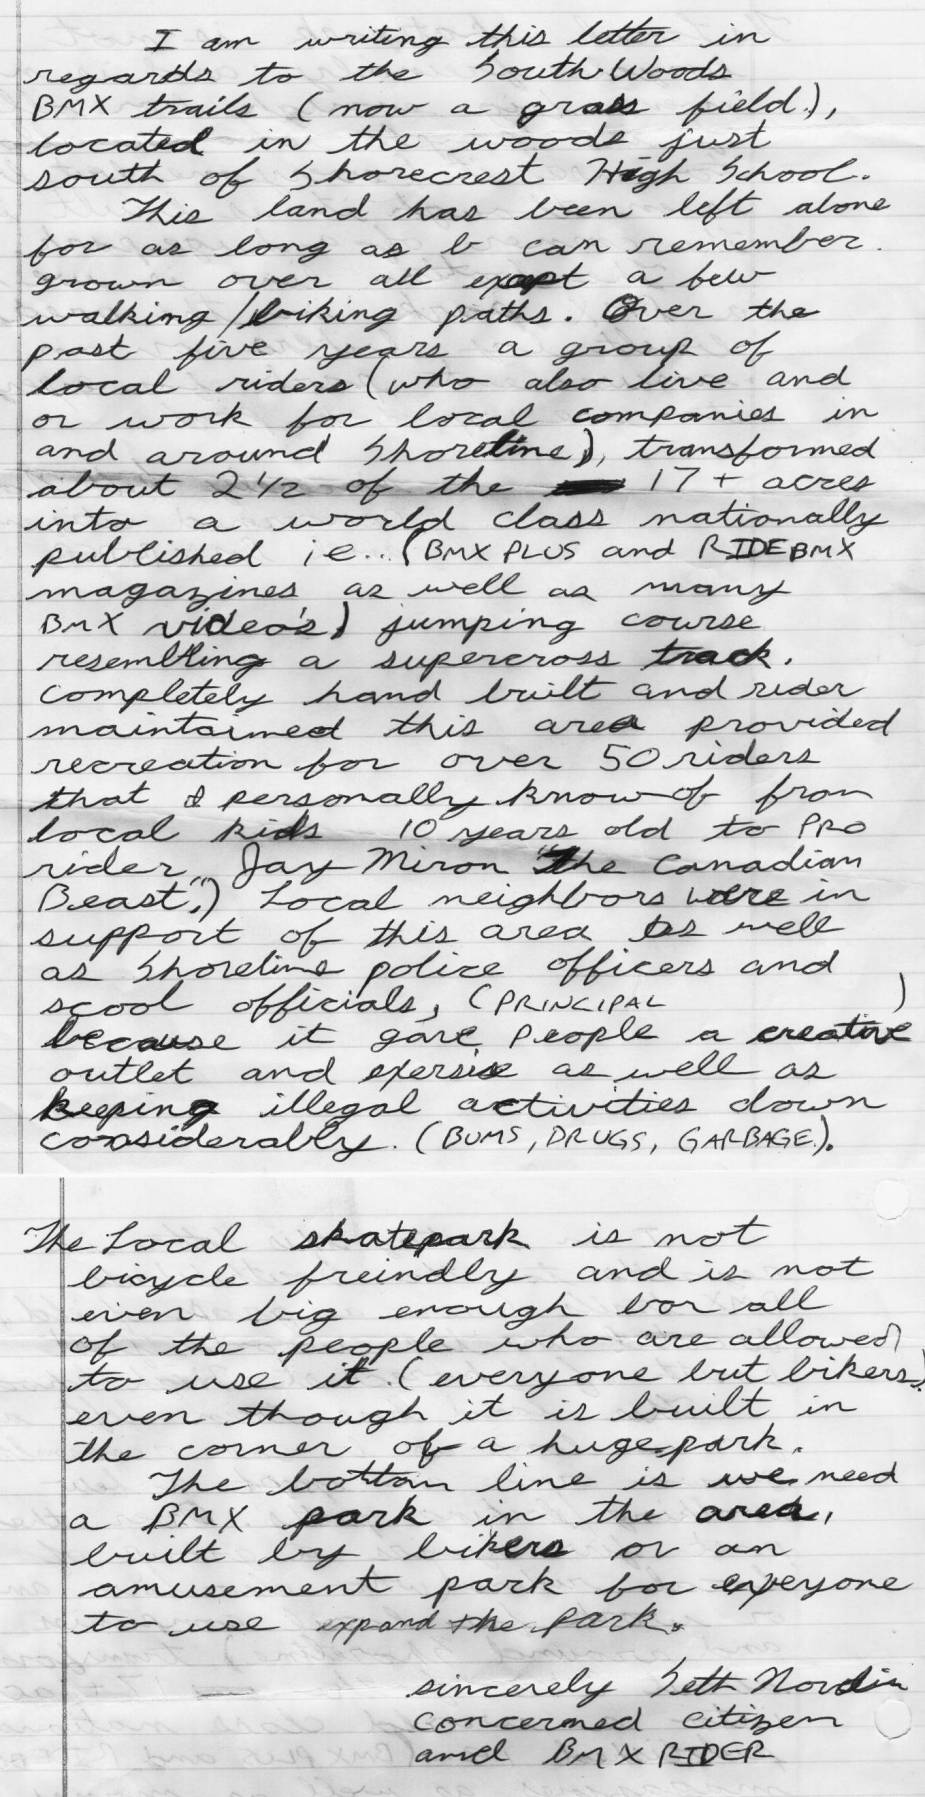 I am writing this letter in
regards to the South Woods
BMX trails (now a grass field.),
located in the woods just
south of Shorecrest High School.
This land has been left alone
for as long as I can remember.
grown over all exept a few
walking/biking paths. Over the
past five years a group of
local riders (who also live and
or work for local companies in
and around Shoreline), transformed
about 2 1/2 of the 17+ acres
into a world class nationally
published ie.. (BMX PLUS and RIDE BMX
magazines as well as many
BMX video's) jumping course
resembling a supercross track.
completely hand built and rider
maintained this area provided
recreation for over 50 riders
that I personally know of from
local kids 10 years old to PRO
rider Jay Miron "the Canadian
Beast".) Local neighbors were in
support of this area as well
as Shoreline police officers and
scool officials, (PRINCIPAL )
because it gave people a creative
outlet and exersise as well as
keeping illegal activities down
considerably. (BUMS, DRUGS, GARBAGE.).
The Local skatepark is not
bicycle freindly and is not
even big enough for all
of the people who are allowed
to use it. (everyone but bikers).
even though it is built in
the corner of a huge park.
The bottom line is we need
a BMX park in the area,
built by bikers or an
amusement park for everyone
to use expand the park.
sincerely Seth Nordin
concerned citizen
and BMX RIDER